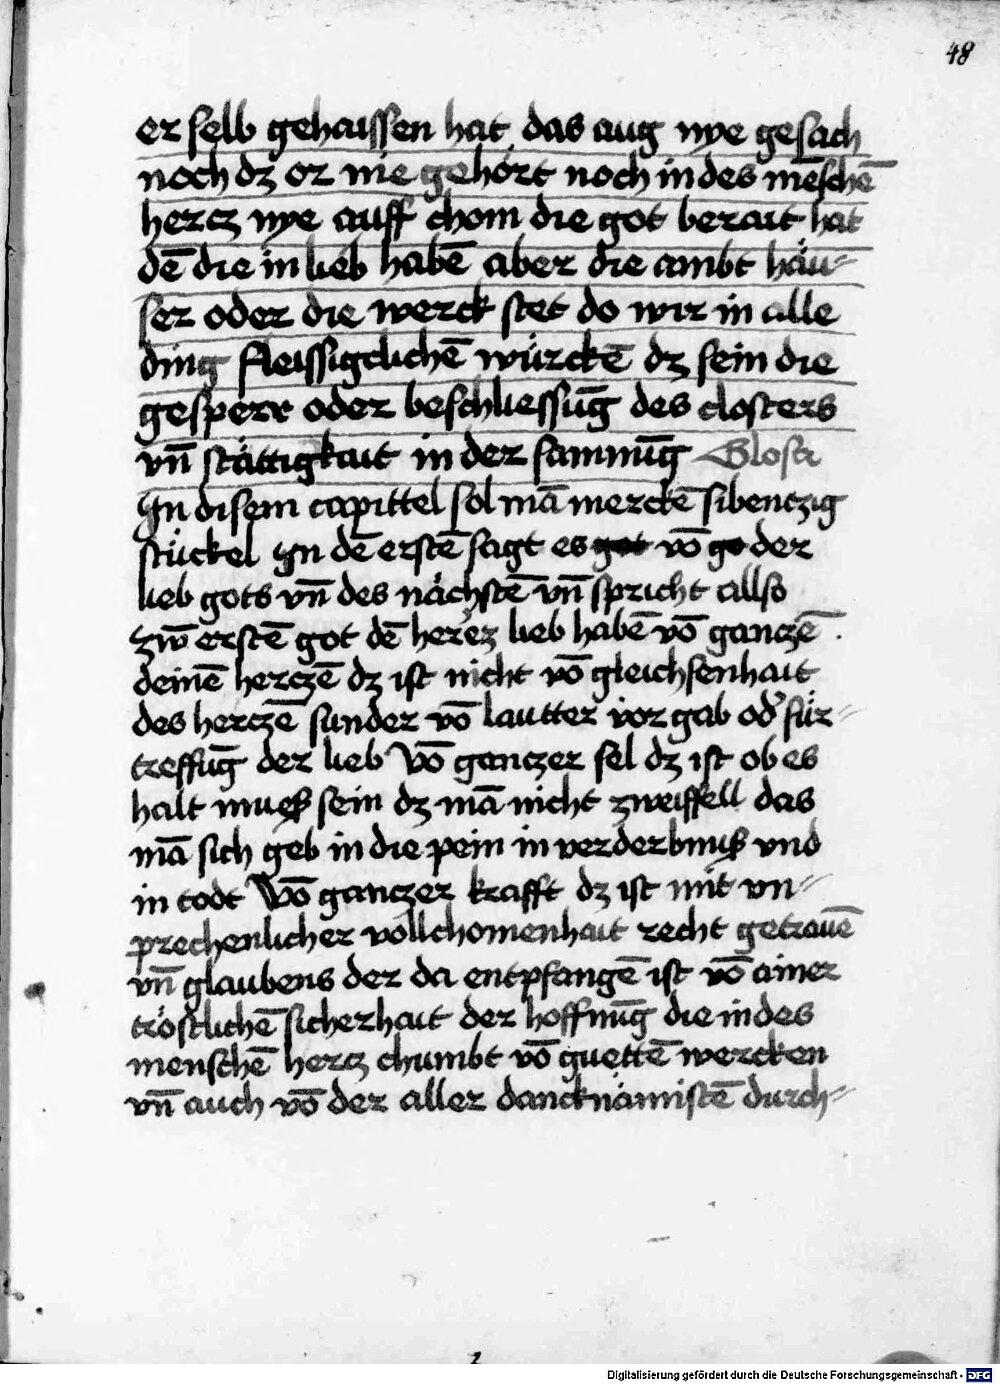 48
er selb gehaissen hat das aug nye gesach
noch dz or nie gehört noch in des mēschē
hercz nye auff chom die got berait hat
dē die in lieb habē aber die ambt häu⸗
ser oder die werck stet do wir in alle
ding fleissigclichē würckē dz sein die
gesperr oder beschliessūg des closters
vn̄ stättigkait in der samnūg Glosa
In disem capittel sol mā merckē sibenczig
stückel In dē erstē sagt es got vō go der
lieb gots vn̄ des nächstē vn̄ spricht allso
zw̄ erstē got dē herrēz lieb habē vō ganczē
deinē herczē dz ist nicht vō gleichsenhait
des herczē sunder vō lautter vorgab od' für⸗
treffūg der lieb Vō ganczer sel dz ist ob es
halt mueß sein dz mā nicht zweiffell das
mā sich geb in die pein in verderbnuß vnd
in todt Vō ganczer krafft dz ist mit vn⸗
prechenlicher vollchomenhait recht getrauē
vn̄ glaubens der da entpfangē ist vō ainer
tröstlichē sicherhait der hoffnūg die in des
menschē hercz chumbt vō guettē wercken
vn̄ auch vō der aller dancknämistē durch⸗
Digitalisierung gefördert durch die Deutsche Forschungsgemeinschaft - DFG